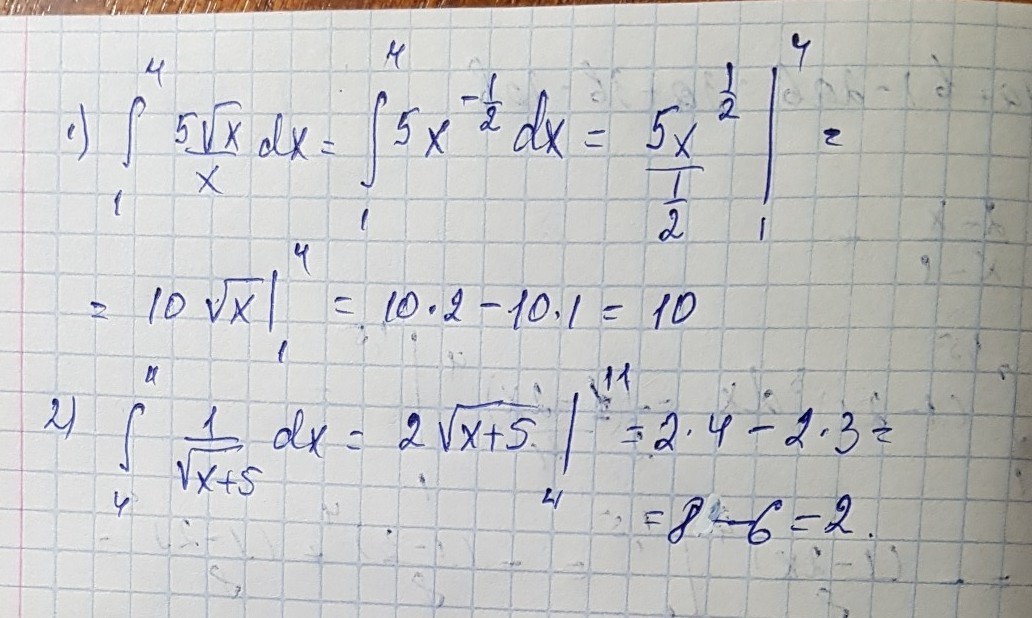 1) ∫₁⁴ 5√x/x dx = ∫₁⁴ 5x^(-1/2) dx = 5x^(1/2)/(1/2) |₁⁴ =
= 10√x |₁⁴ = 10·2 - 10·1 = 10
2) ∫₄¹¹ 1/√(x+5) dx = 2√(x+5) |₄¹¹ = 2·4 - 2·3 =
= 8 - 6 = 2.